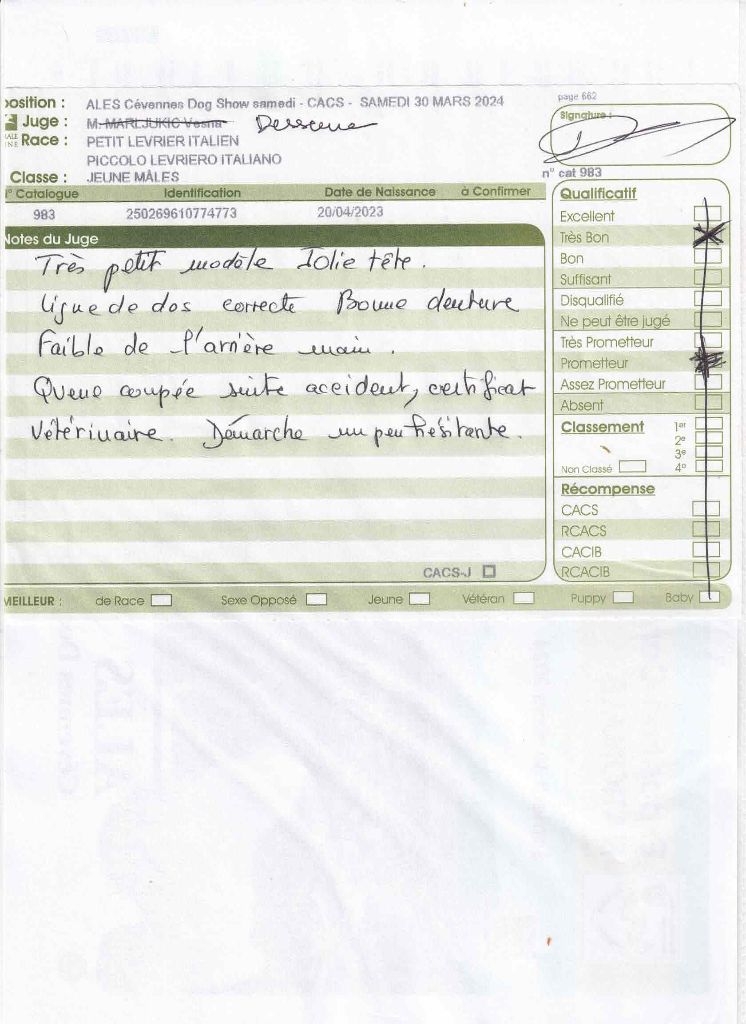 position : ALES Cévennes Dog Show samedi - CACS - SAMEDI 30 MARS 2024
Juge : M. MARIJUKIC Vesna
Race : PETIT LEVRIER ITALIEN
PICCOLO LEVRIERO ITALIANO
Classe : JEUNE MÂLES
page 662
Signature :
n° cat 983
N° Catalogue Identification Date de Naissance à Confirmer
983 250269610774773 20/04/2023
Notes du Juge
Très petit modèle Jolie tête.
Ligne de dos correcte Bonne denture
Faible de l'arrière main.
Queue coupée suite accident, certificat
Vétérinaire. Démarche un peu hésitante.
CACS-J
Qualificatif
Excellent
Très Bon
Bon
Suffisant
Disqualifié
Ne peut être jugé
Très Prometteur
Prometteur
Assez Prometteur
Absent
Classement 1er
2e
3e
Non Classé 4e
Récompense
CACS
RCACS
CACIB
RCACIB
MEILLEUR : de Race Sexe Opposé Jeune Vétéran Puppy Baby